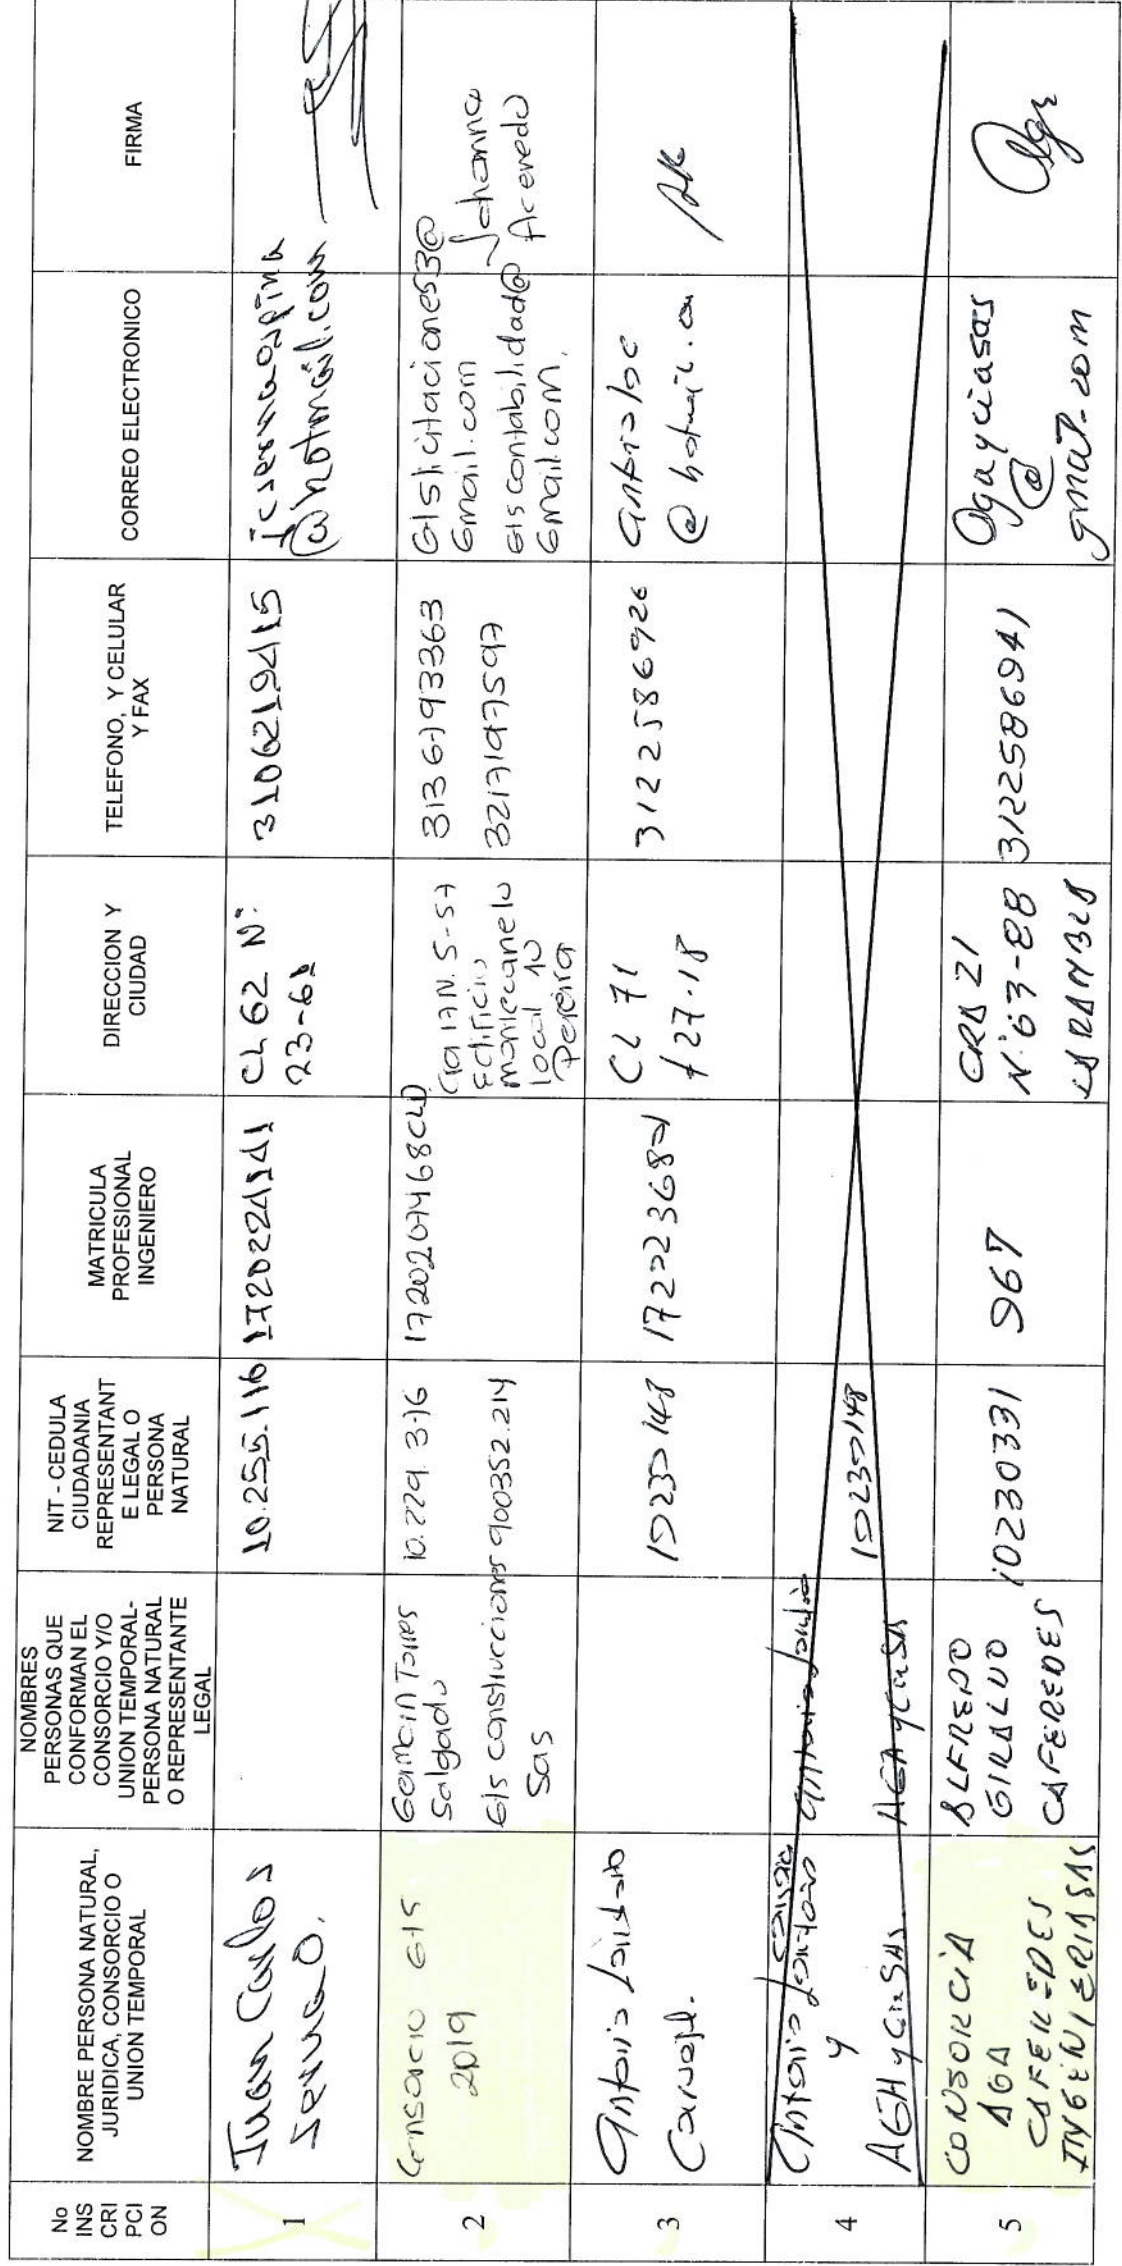 No
INS
CRI
PCI
ON
NOMBRE PERSONA NATURAL,
JURIDICA, CONSORCIO O
UNION TEMPORAL
NOMBRES
PERSONAS QUE
CONFORMAN EL
CONSORCIO Y/O
UNION TEMPORAL-
PERSONA NATURAL
O REPRESENTANTE
LEGAL
NIT - CEDULA
CIUDADANIA
REPRESENTANT
E LEGAL O
PERSONA
NATURAL
MATRICULA
PROFESIONAL
INGENIERO
DIRECCION Y
CIUDAD
TELEFONO, Y CELULAR
Y FAX
CORREO ELECTRONICO
FIRMA
1
Juan Carlos
Serna O.
10.255.116
1720224141
CL 62 N°
23-61
3106219415
jcsernaospina
@hotmail.com
2
Consorcio GIS
2019
German Torres
Salgado
GIS construcciones
Sas
10.229.376
900352.214
1720207468CLD
Cra 17 N. 5-57
Edificio
montecanelo
local 10
Pereira
3136793363
3217197597
GISlicitaciones3@
Gmail.com
GIScontabilidad@
Gmail.com.
Johanna
Acevedo
3
Antonio
Carvajal.
10230148
CL 71
# 27-18
3122586926
@ hotmail.com
4
Antonio
y
AGA y Cia SAS
Antonio
AGA y Cia SA
10230148
5
CONSORCIA
AGA
CAFEREDES
INGENIERIA SAS
ALFREDO
GIRALDO
CAFEREDES
10230331
967
CRA 21
N° 63-88
LARAMBLA
3122586941
Ogayciasas
@
gmail.com